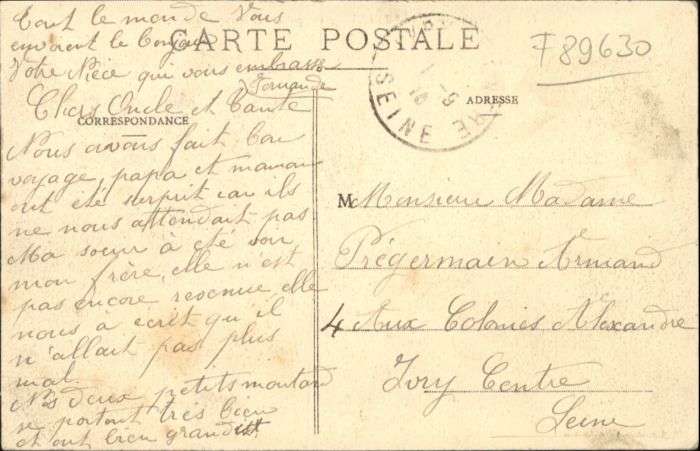 Tout le monde vous
envoient le bonjour
Votre Nièce qui vous embrasse
Fernande
CARTE POSTALE
F89630
SEINE
CORRESPONDANCE
ADRESSE
Chers Oncle et Tante
Nous avons fait bon
voyage, papa et maman
ont été surprit car ils
ne nous attendait pas
Ma soeur à été voir
mon frère, elle n'est
pas encore revenue elle
nous à écrit qu'il
n'allait pas plus
mal.
Nos deux petits moutons
se portent très bien
et ont bien grandit
M Monsieur Madame
Prégermain Armand
4 Aux Colonies Alexandre
Ivry Centre
Seine